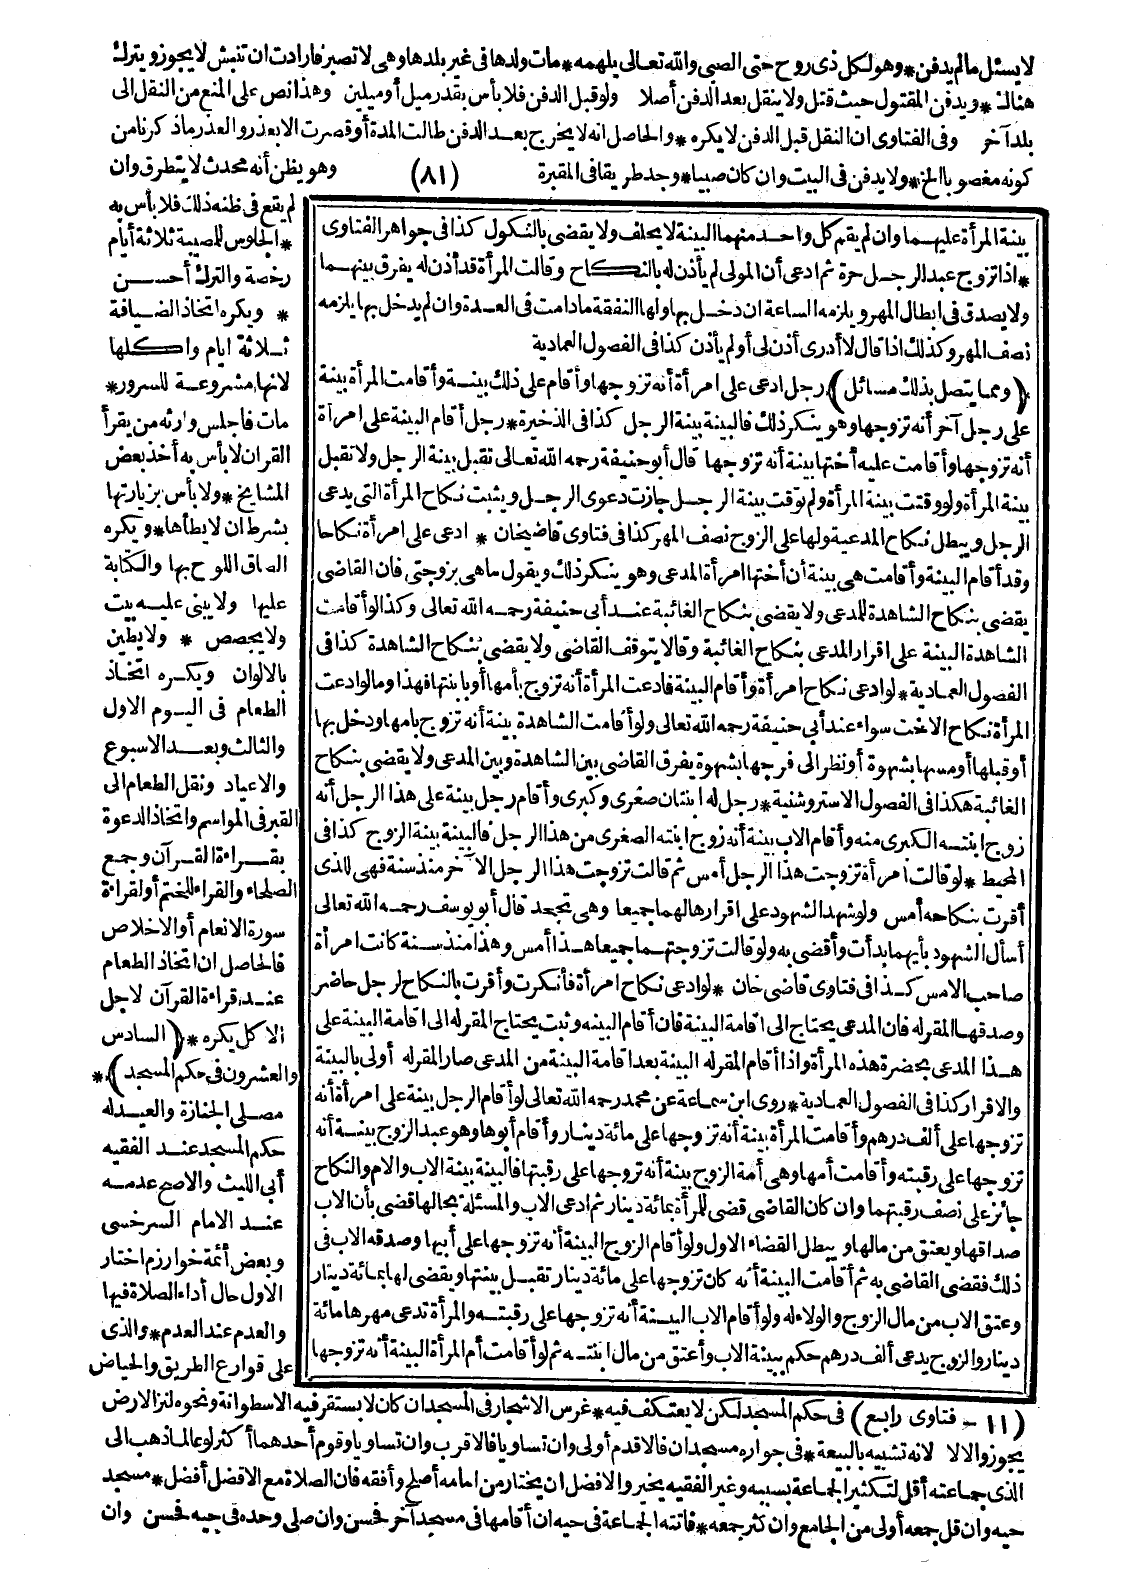 لا يسئل مالم يدفن * وهو لكل ذى روح حتى الصبى والله تعالى يلهمه * مات ولدها فى غير بلدها وهى لا تصبر فارادت ان تنبش لا يجوز ويترك
هناك * ويدفن المقتول حيث قتل ولا ينقل بعد الدفن أصلا ولو قبل الدفن فلا بأس بقدر ميل أو ميلين وهذا نص على المنع من النقل الى
بلد آخر وفى الفتاوى ان النقل قبل الدفن لا يكره * والحاصل انه لا يخرج بعد الدفن طالت المدة أو قصرت الا بعذر والعذر ماذكرنا من
كونه مغصوبا الخ * ولا يدفن فى البيت وان كان صبيا * وجد طريقا فى المقبرة (٨١) وهو يظن أنه محدث لا يتطرق وان
لم يقع فى ظنه ذلك فلا بأس به
* الجلوس للمصيبة ثلاثة أيام
رخصة والترك أحسن
* ويكره اتخاذ الضيافة
ثلاثة ايام واكلها
لانها مشروعة للسرور *
مات فاجلس وارثه من يقرأ
القران لا بأس به أخذ بعض
المشايخ * ولا بأس بزيارتها
بشرط ان لا يطأها * ويكره
الصاق اللوح بها والكتابة
عليها ولا يبنى عليه بيت
ولا يجصص * ولا يطين
بالالوان ويكره اتخاذ
الطعام فى اليوم الاول
والثالث وبعد الاسبوع
والاعياد ونقل الطعام الى
القبر فى المواسم واتخاذ الدعوة
بقراءة القرآن وجمع
الصلحاء والقراء للختم أو لقراءة
سورة الانعام أو الاخلاص
فالحاصل ان اتخاذ الطعام
عند قراءة القرآن لاجل
الاكل يكره * (السادس
والعشرون فى حكم المسجد) *
مصلى الجنازة والعيد له
حكم المسجد عند الفقيه
أبى الليث والاصح عدمه
عند الامام السرخسى
وبعض أئمة خوارزم اختار
الاول حال أداء الصلاة فيها
والعدم عند العدم * والذى
على قوارع الطريق والحياض
بينة المرأة عليهما وان لم يقم كل واحد منهما البينة لا يحلف ولا يقضى بالنكول كذا فى جواهر الفتاوى
* اذا تزوج عبد الرجل حرة ثم ادعى أن المولى لم يأذن له بالنكاح وقالت المرأة قد أذن له يفرق بينهما
ولا يصدق فى ابطال المهر ويلزمه الساعة ان دخل بها ولها النفقة مادامت فى العدة وان لم يدخل بها يلزمه
نصف المهر وكذلك اذا قال لا أدرى أذن لى أو لم يأذن كذا فى الفصول العمادية
(ومما يتصل بذلك مسائل) رجل ادعى على امرأة أنه تزوجها وأقام على ذلك بينة وأقامت المرأة بينة
على رجل آخر أنه تزوجها وهو ينكر ذلك فالبينة بينة الرجل كذا فى الذخيرة * رجل أقام البينة على امرأة
أنه تزوجها وأقامت عليه أختها بينة أنه تزوجها قال أبو حنيفة رحمه الله تعالى تقبل بينة الرجل ولا تقبل
بينة المرأة ولو وقتت بينة المرأة ولم توقت بينة الرجل جازت دعوى الرجل ويثبت نكاح المرأة التى يدعى
الرجل ويبطل نكاح المدعية ولها على الزوج نصف المهر كذا فى فتاوى قاضيخان * ادعى على امرأة نكاحا
وقد أقام البينة وأقامت هى بينة أن أختها امرأة المدعى وهو ينكر ذلك ويقول ماهى بزوجتى فان القاضى
يقضى بنكاح الشاهدة للمدعى ولا يقضى بنكاح الغائبة عند أبى حنيفة رحمه الله تعالى وكذا لو أقامت
الشاهدة البينة على اقرار المدعى بنكاح الغائبة وقالا يتوقف القاضى ولا يقضى بنكاح الشاهدة كذا فى
الفصول العمادية * لو ادعى نكاح امرأة وأقام البينة فادعت المرأة أنه تزوج بأمها أو بابنتها فهذا وما لو ادعت
المرأة نكاح الاخت سواء عند أبى حنيفة رحمه الله تعالى ولو أقامت الشاهدة بينة أنه تزوج بامها ودخل بها
أو قبلها أو مسها بشهوة أو نظر الى فرجها بشهوة يفرق القاضى بين الشاهدة وبين المدعى ولا يقضى بنكاح
الغائبة هكذا فى الفصول الاستروشنية * رجل له ابنتان صغرى وكبرى وأقام رجل بينة على هذا الرجل أنه
زوج ابنته الكبرى منه وأقام الاب بينة أنه زوج ابنته الصغرى من هذا الرجل فالبينة بينة الزوج كذا فى
المحيط * لو قالت امرأة تزوجت هذا الرجل أمس ثم قالت تزوجت هذا الرجل الآخر منذ سنة فهى للذى
أقرت بنكاحه أمس ولو شهد الشهود على اقرارها لهما جميعا وهى تجحد قال أبو يوسف رحمه الله تعالى
أسأل الشهود بأيهما بدأت وأقضى به ولو قالت تزوجتهما جميعا هذا أمس وهذا منذ سنة كانت امرأة
صاحب الامس كذا فى فتاوى قاضى خان * لو ادعى نكاح امرأة فأنكرت وأقرت بالنكاح لرجل حاضر
وصدقها المقر له فان المدعى يحتاج الى اقامة البينة فان أقام البينه وثبت يحتاج المقر له الى اقامة البينة على
هذا المدعى بحضرة هذه المرأة واذا أقام المقر له البينة بعد اقامة البينة من المدعى صار المقر له أولى بالبينة
والاقرار كذا فى الفصول العمادية * روى ابن سماعة عن محمد رحمه الله تعالى لو أقام الرجل بينة على امرأة أنه
تزوجها على ألف درهم وأقامت المرأة بينة أنه تزوجها على مائة دينار وأقام أبوها وهو عبد الزوج بينة أنه
تزوجها على رقبته وأقامت أمها وهى أمة الزوج بينة أنه تزوجها على رقبتها فالبينة بينة الاب والام والنكاح
جائز على نصف رقبتهما وان كان القاضى قضى للمرأة بمائة دينار ثم ادعى الاب والمسئلة بحالها قضى بأن الاب
صداقها ويعتق من مالها ويبطل القضاء الاول ولو أقام الزوج البينة أنه تزوجها على أبيها وصدقه الاب فى
ذلك فقضى القاضى به ثم أقامت البينة أنه كان تزوجها على مائة دينار تقبل بينتها ويقضى لها بمائة دينار
وعتق الاب من مال الزوج والولاء له ولو أقام الاب البينة أنه تزوجها على رقبته والمرأة تدعى مهرها مائة
دينار والزوج يدعى ألف درهم حكم ببينة الاب وأعتق من مال ابنته ثم لو أقامت أم المرأة البينة أنه تزوجها
(١١ - فتاوى رابع) فى حكم المسجد لكن لا يعتكف فيه * غرس الاشجار فى المسجد ان كان لا يستقر فيه الاسطوانة ونحوه لنز الارض
يجوز والا لا لانه تشبيه بالبيعة * فى جواره مسجدان فالاقدم أولى وان تساويا فالاقرب وان تساويا وقوم أحدهما أكثر لو عالما ذهب الى
الذى جماعته أقل لتكثير الجماعة بسببه وغير الفقيه يخير والافضل ان يختار من امامه أصلح وأفقه فان الصلاة مع الافضل أفضل * مسجد
حيه وان قل جمعه أولى من الجامع وان كثر جمعه * فاتته الجماعة فى حيه ان أقامها فى مسجد آخر فحسن وان صلى وحده فى حيه فحسن وان